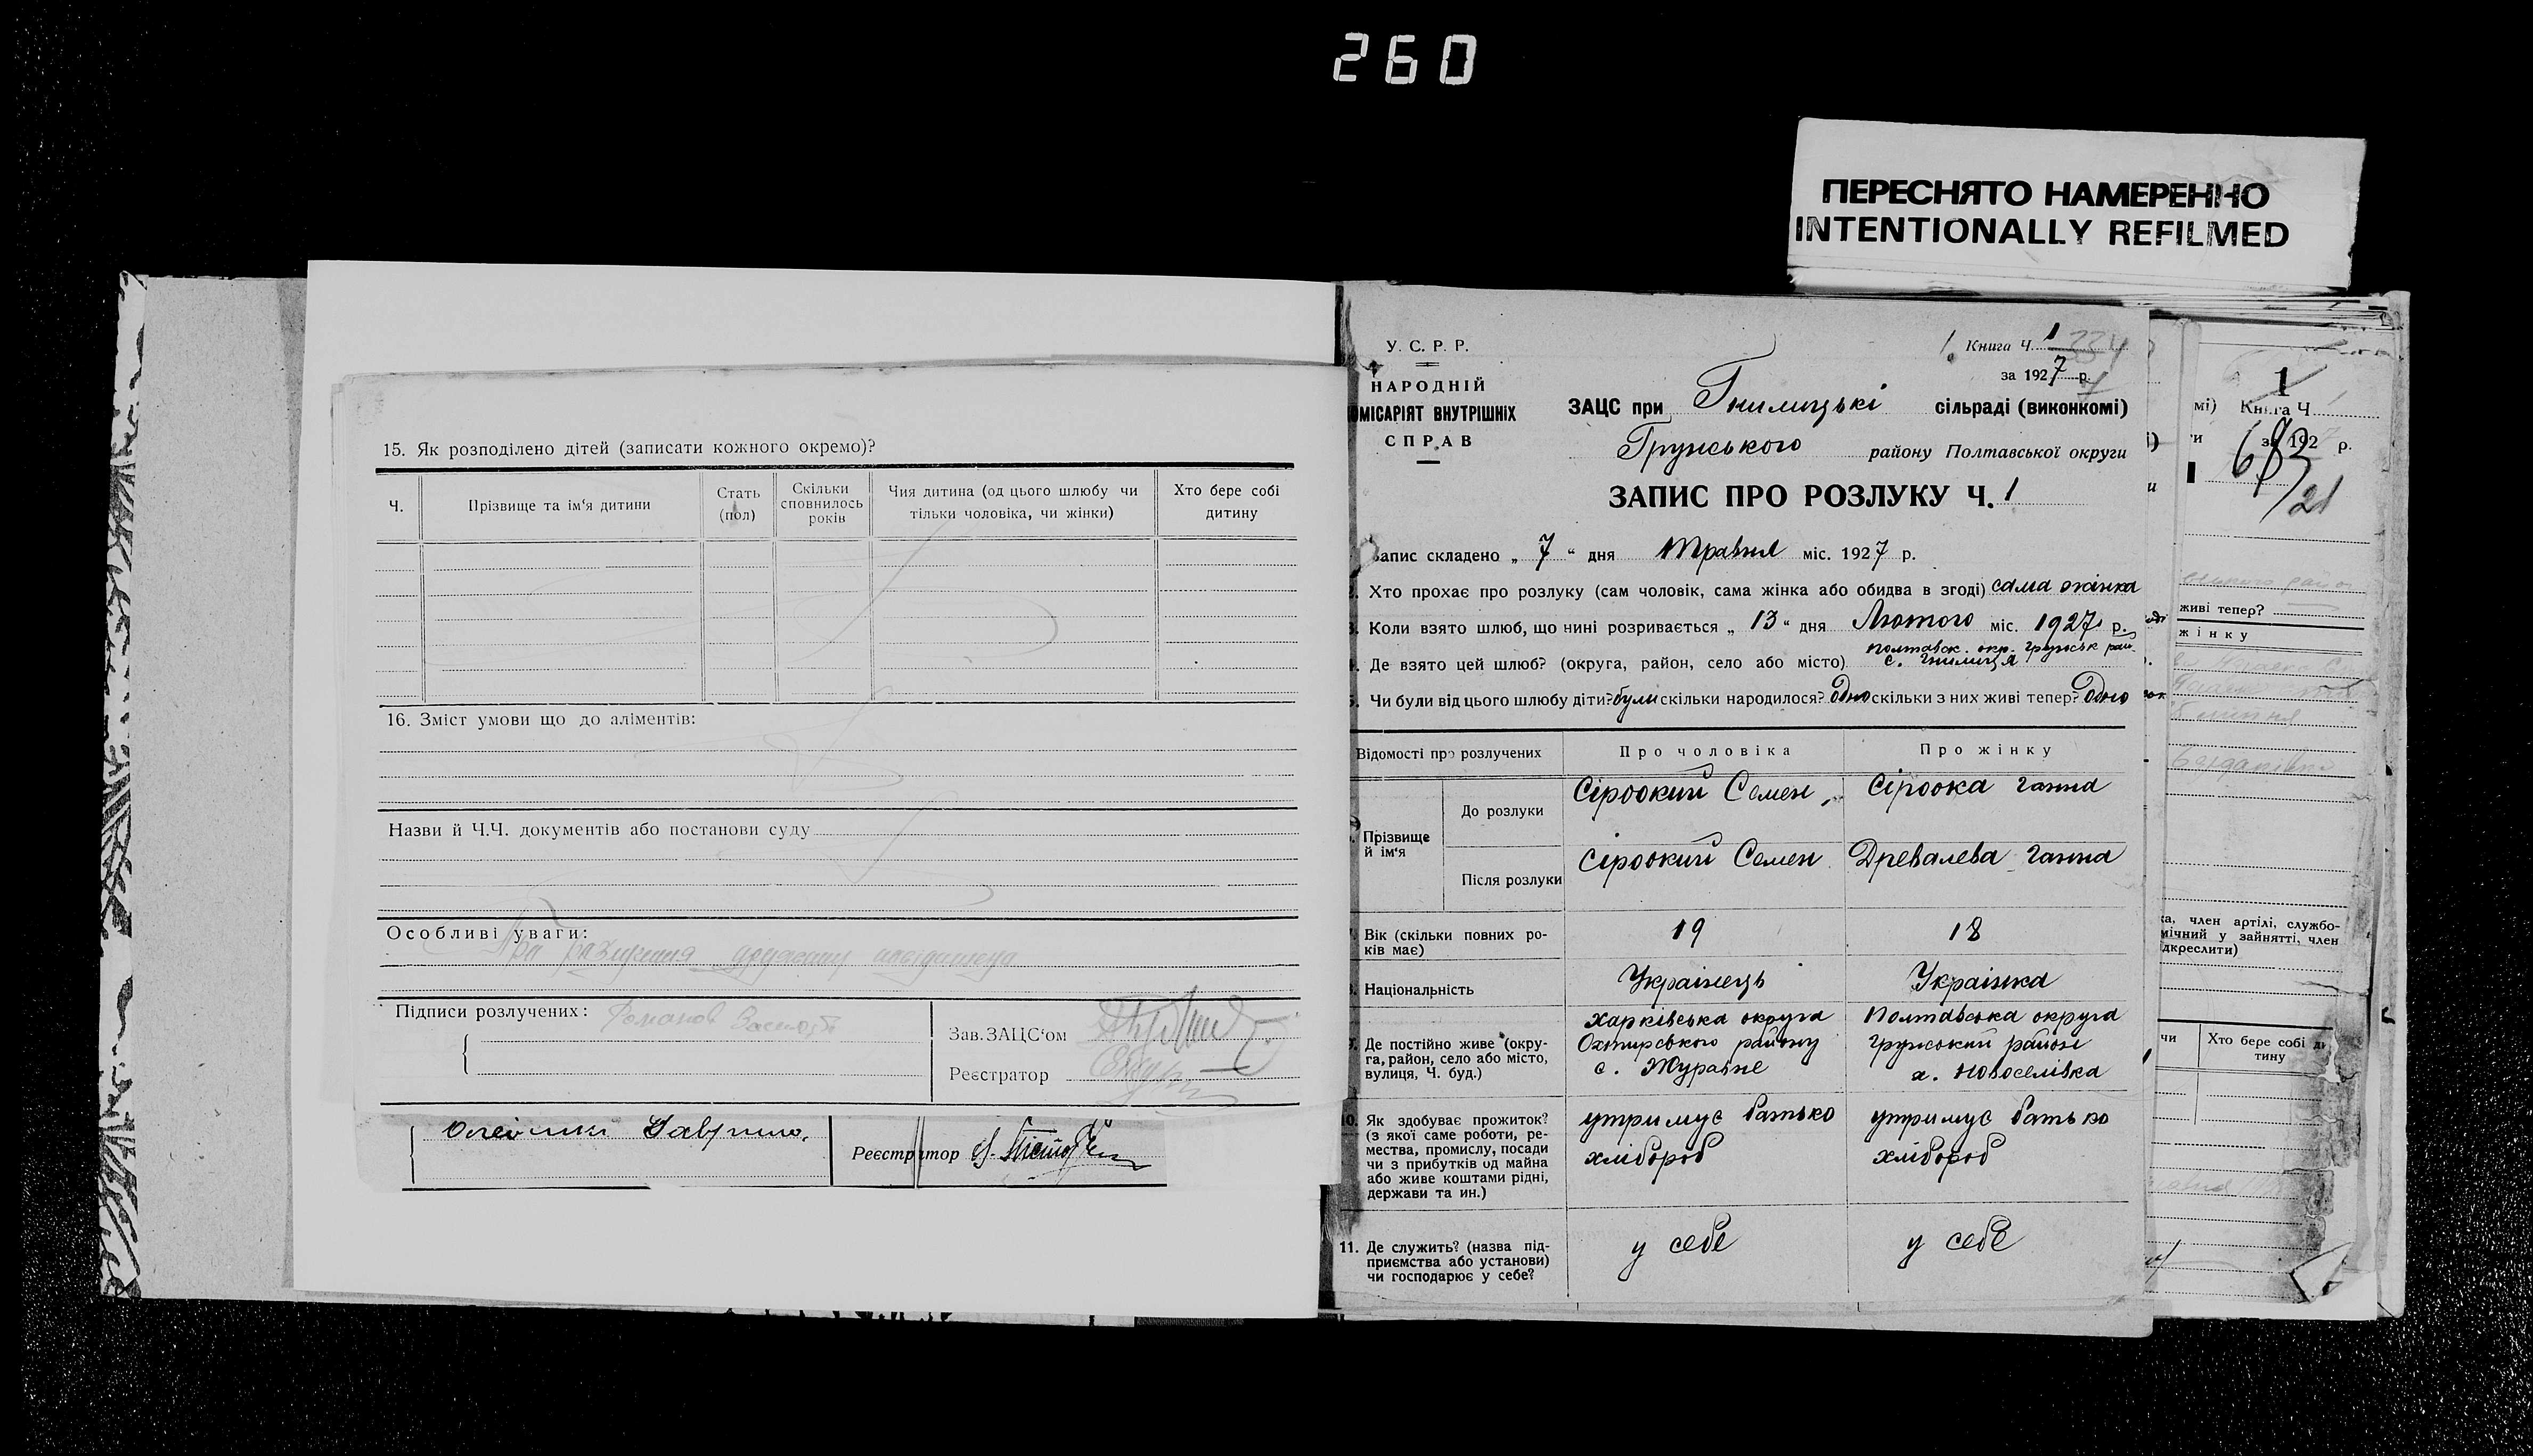 260
ПЕРЕСНЯТО НАМЕРЕННО
INTENTIONALLY REFILMED
15. Як розподілено дітей (записати кожного окремо)?
Ч.
Прізвище та ім'я дитини
Стать (пол)
Скільки сповнилось років
Чия дитина (од цього шлюбу чи тільки чоловіка, чи жінки)
Хто бере собі дитину
16. Зміст умови що до аліментів:
Назви й Ч.Ч. документів або постанови суду
Особливі уваги:
Підписи розлучених:
Зав. ЗАЦС'ом
Реєстратор
Реєстратор
У. С. Р. Р.
НАРОДНІЙ
ОМІСАРІЯТ ВНУТРІШНІХ
СПРАВ
Книга Ч. 1
за 1927 р.
ЗАЦС при Гнилицькі сільраді (виконкомі)
Грунського району Полтавської округи
ЗАПИС ПРО РОЗЛУКУ Ч. 1
Запис складено „ 7 “ дня Травня міс. 1927 р.
Хто прохає про розлуку (сам чоловік, сама жінка або обидва в згоді) сама жінка
Коли взято шлюб, що нині розривається „ 13 “ дня Лютого міс. 1927 р.
Полтавськ. окр. Грунськ рай.
Де взято цей шлюб? (округа, район, село або місто) с. Гнилиця
Чи були від цього шлюбу діти? були скільки народилося? одно скільки з них живі тепер? одно
Відомості про розлучених
Про чоловіка
Про жінку
Прізвище й ім'я
До розлуки
Сіроокий Семен
Сіроока Ганна
Після розлуки
Сіроокий Семен
Древалева Ганна
Вік (скільки повних ро-
ків має)
19
18
Національність
Українець
Українка
Де постійно живе (окру-
га, район, село або місто,
вулиця, Ч. буд.)
Харківська округа
Охтирського району
с. Журавне
Полтавська округа
Грунський район
х. Новоселівка
10. Як здобуває прожиток?
(з якої саме роботи, ре-
мества, промислу, посади
чи з прибутків од майна
або живе коштами рідні,
держави та ин.)
утримує батько
хлібороб
утримує батько
хлібороб
11. Де служить? (назва під-
приємства або установи)
чи господарює у себе?
у себе
у себе
мі) Книга Ч
1
за 192 р.
683
21
живі тепер?
жінку
ка, член артілі, службо-
мічний у зайнятті, член
ідкреслити)
чи
Хто бере собі ди
тину